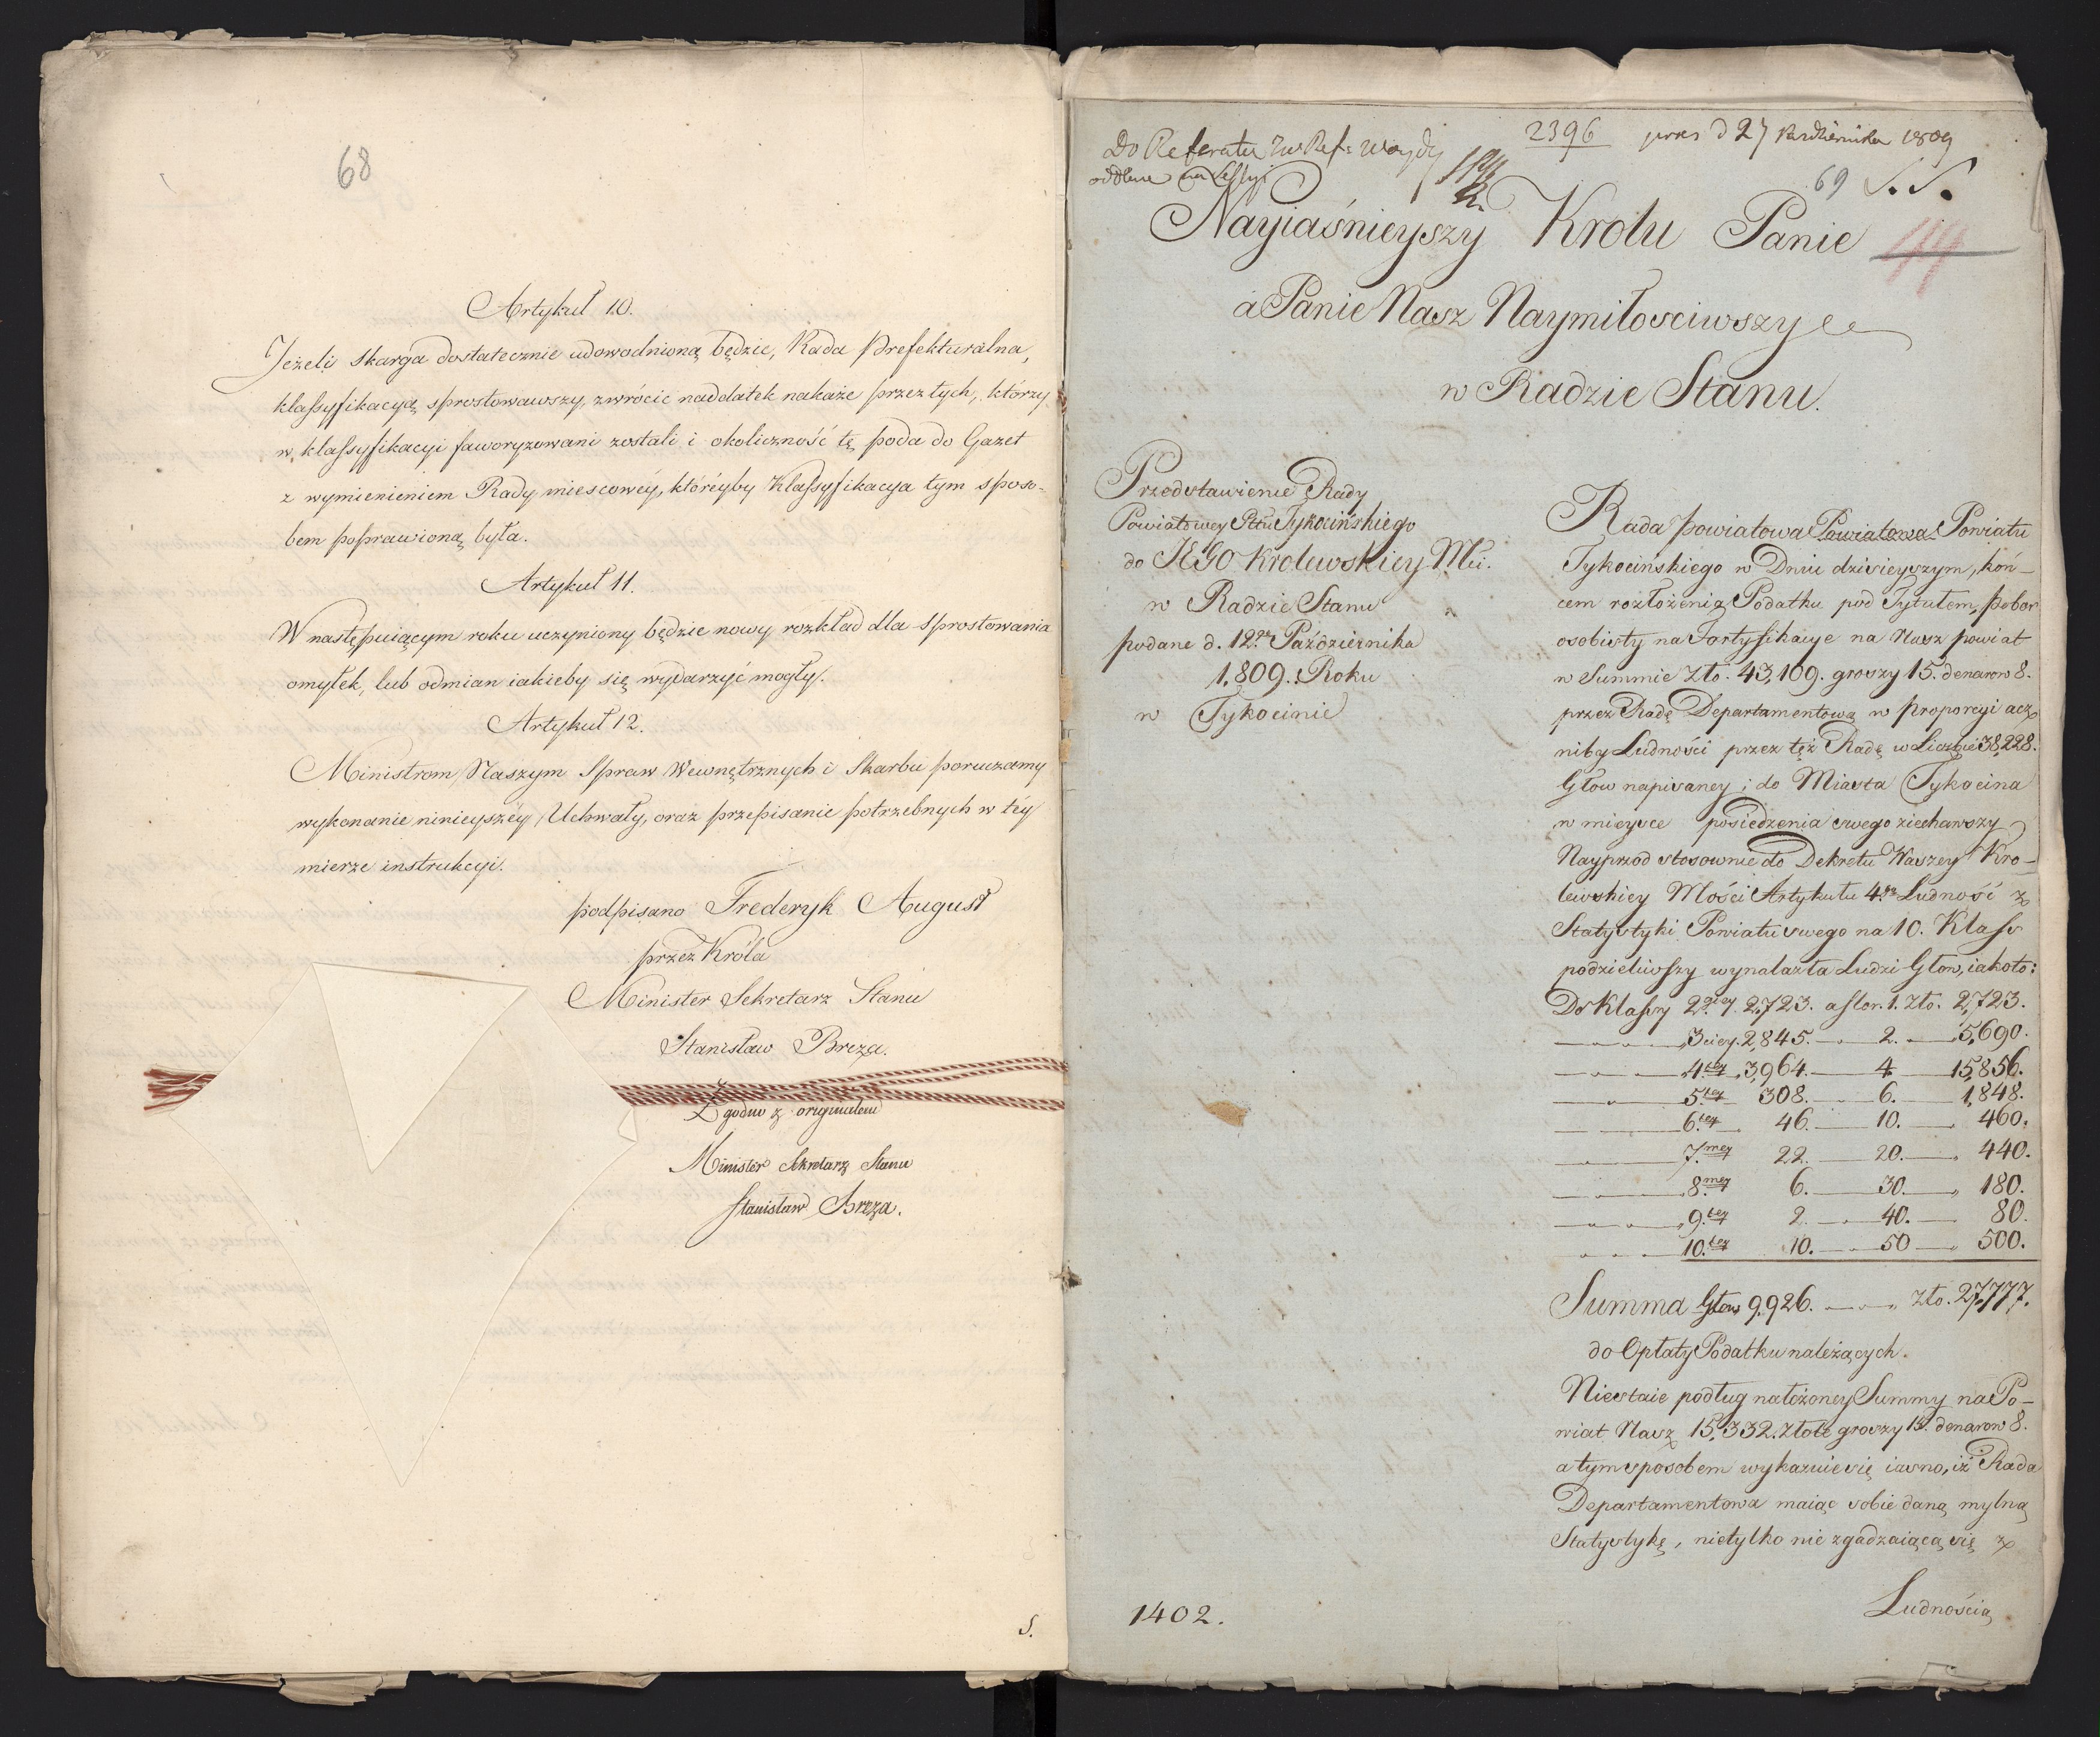 68
Artykuł 10.
Jeżeli skarga dostatecznie udowodnioną będzie, Rada Prefekturalna,
klassyfikacyą sprostowawszy, zwrócić naddatek nakaże przez tych, którzy
w klassyfikacyi faworyzowani zostali i okoliczność tę poda do Gazet
z wymienieniem Rady miescowéy, któréyby Klassyfikacya tym sposo-
bem poprawioną była.
Artykuł 11.
W następuiącym roku uczyniony będzie nowy rozkład dla sprostowania
omyłek, lub odmian iakieby się wydarzyć mogły.
Artykuł 12.
Ministrom Naszym Spraw Wewnętrznych i Skarbu poruczamy
wykonanie ninieyszéy Uchwały, oraz przepisanie potrzebnych w téy
mierze instrukcyi.
podpisano Frederyk August
przez Króla
Minister Sekretarz Stanu
Stanisław Breza.
Zgodno z originałem
Minister Sekretarz Stanu
Stanisław Breza.
S.
2396 pres d 27 Października 1809
Do Referatu
oddane na Sessyi
69
44
Nayiaśnieyszy Krolu Panie
a Panie Nasz Naymiłosciwszy
w Radzie Stanu.
Przedstawienie Rady
Powiatowey Pttu Tykocińskiego
do JEGO Krolewskiey Mci.
w Radzie Stanu
podane d. 12go Października
1,809. Roku
w Tykocinie
Rada powiatowa Powiatowa Powiatu
Tykocińskiego w Dniu dzisieyszym, koń-
cem rozłożenia Podatku pod Tytułem, pobor
osobisty na Fortyfikacye na Nasz powiat
w Summie Zło. 43,109. groszy 15. denarow 8.
przez Radę Departamentową w proporcyi acz
niby Ludności przez tęż Radę w Liczbie 38,228.
Głow napisaney; do Miasta Tykocina
w mieysce posiedzenia swego ziechawszy
Nayprzod stosownie do Dekretu Waszey Kro-
lewskiey Mości Artykułu 4go Ludność z
Statystyki Powiatu swego na 10. Klass
podzieliwszy wynalazła Ludzi Głow, iakoto:
Do Klassy 2giey. 2,723. a flor. 1. zło. 2,723.
3ciey. 2,845. 2. 5,690.
4tey 3,964. 4 15,856.
5tey 308. 6. 1,848.
6tey 46. 10. 460.
7mey 22. 20. 440.
8mey 6. 30. 180.
9tey 2. 40. 80.
10tey 10. 50 500.
Summa Głow 9,926. zło. 27,777.
do Opłaty Podatku należących.
Niestaie podług nałożoney Summy na Po-
wiat Nasz 15,332. złote groszy 15. denarow 8.
a tym sposobem wykazuie się iasno, iż Rada
Departamentowa maiąc sobie daną mylną
Statystykę, nietylko nie zgadzaiącą się z
Ludnością
1402.